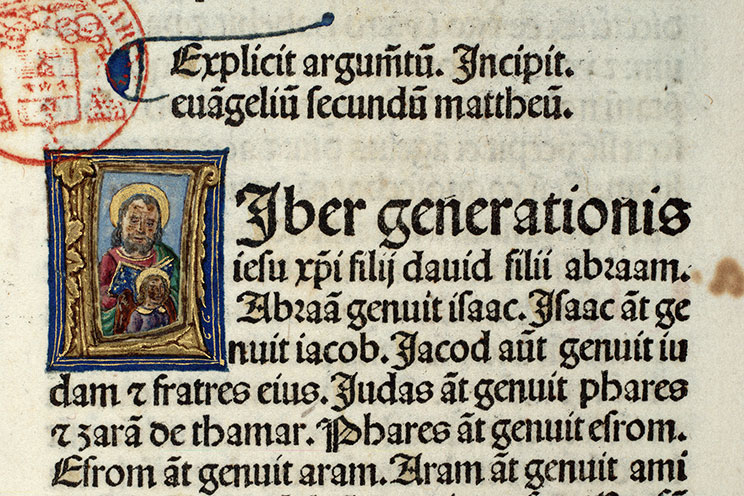 Explicit argum̄tū. Incipit.
euāgeliū ſecundū mattheū.
Iber generationis
ieſu xp̄i filij dauid filii abraam.
Abraā genuit iſaac. Iſaac āt ge
nuit iacob. Jacod aūt genuit iu
dam ⁊ fratres eius. Judas āt genuit phares
⁊ zarā de thamar. Phares āt genuit eſrom.
Eſrom āt genuit aram. Aram āt genuit ami